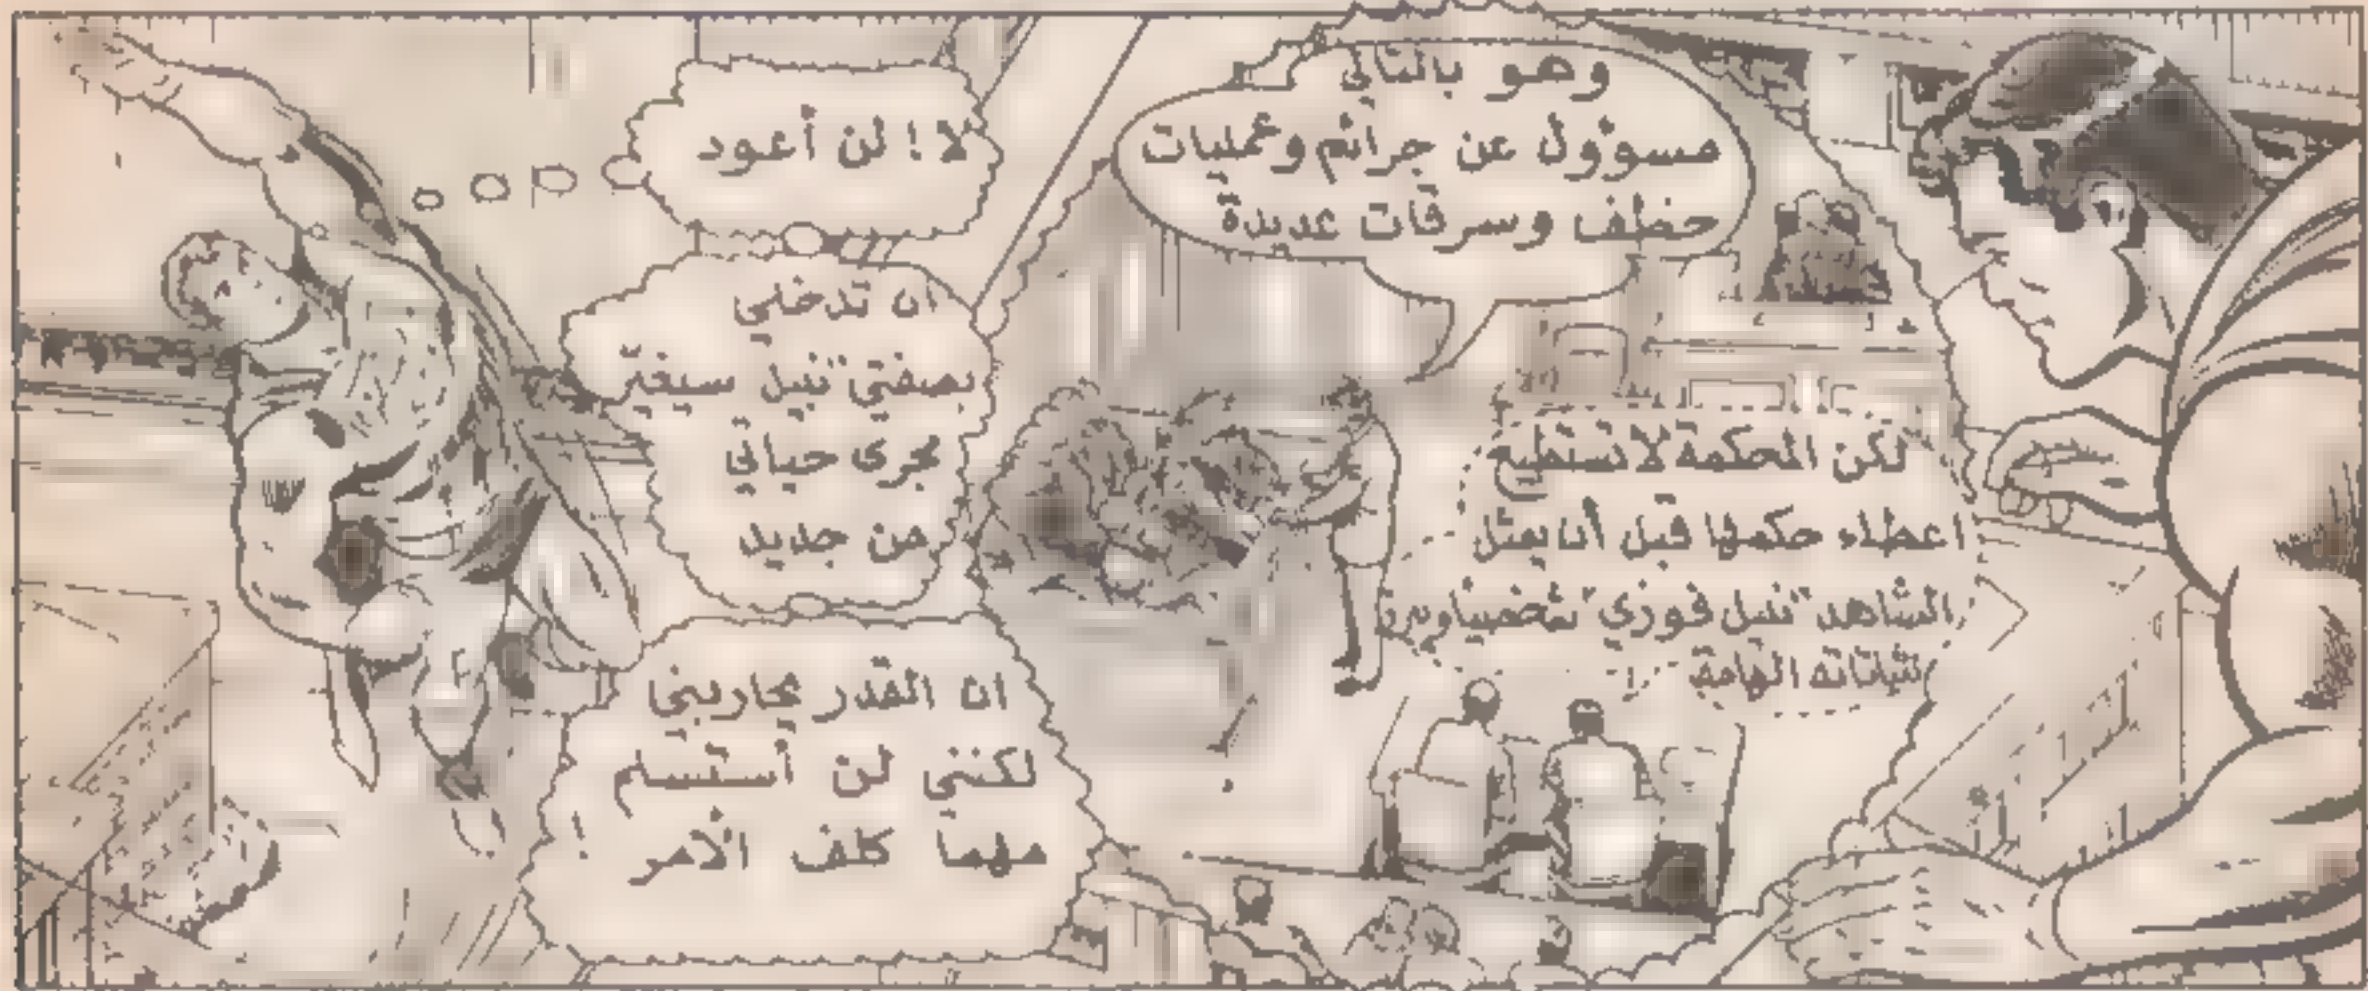 وهو بالتالي
مسوؤول عن جرائم وعمليات
خطف وسرقات عديدة
لكن المحكمة لا تستطيع
اعطاء حكمها قبل أن يمثل
الشاهد "نبيل فوزي" شخصيا ويبرز
الهامة
لا! لن أعود
ان تدخلي
بصفتي "نبيل" سيغيّر
مجرى حياتي
من جديد
ان القدر يحاربني
لكنني لن أستسلم
مهما كلف الأمر !